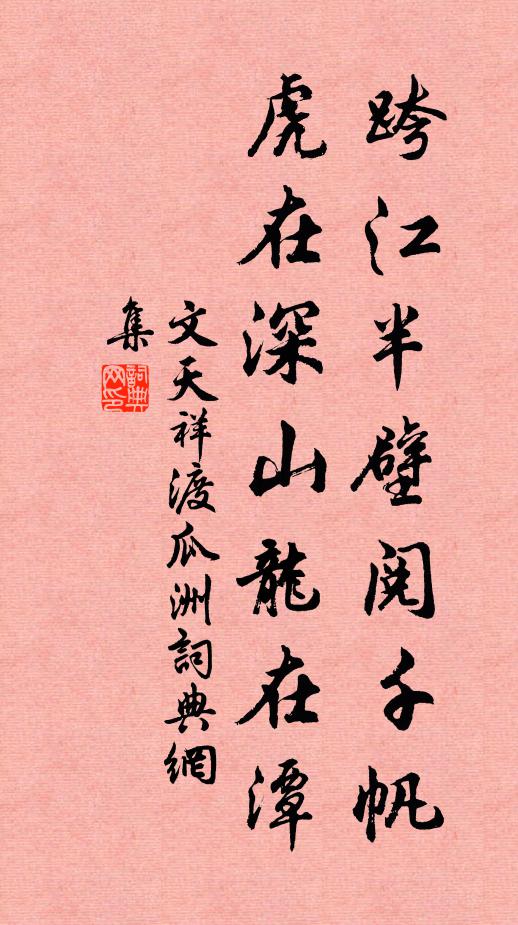 跨江半壁閱千帆
虎在深山龍在潭
文天祥渡瓜洲詞典網
集
詞典
网印